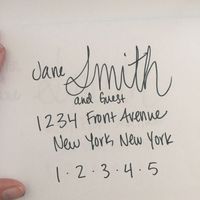 Jane Smith
and Guest
1234 Front Avenue
New York, New York
1 · 2 · 3 · 4 · 5